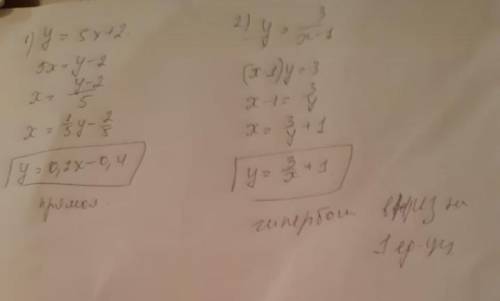 1) y = 5x+2
5x = y-2
x = y-2/5
x = 1/5 y - 2/5
y = 0,2x - 0,4
прямая
2) y = 3/x-1
(x-1)y = 3
x-1 = 3/y
x = 3/y + 1
y = 3/x + 1
гипербола
вверх на
1 ед-цу